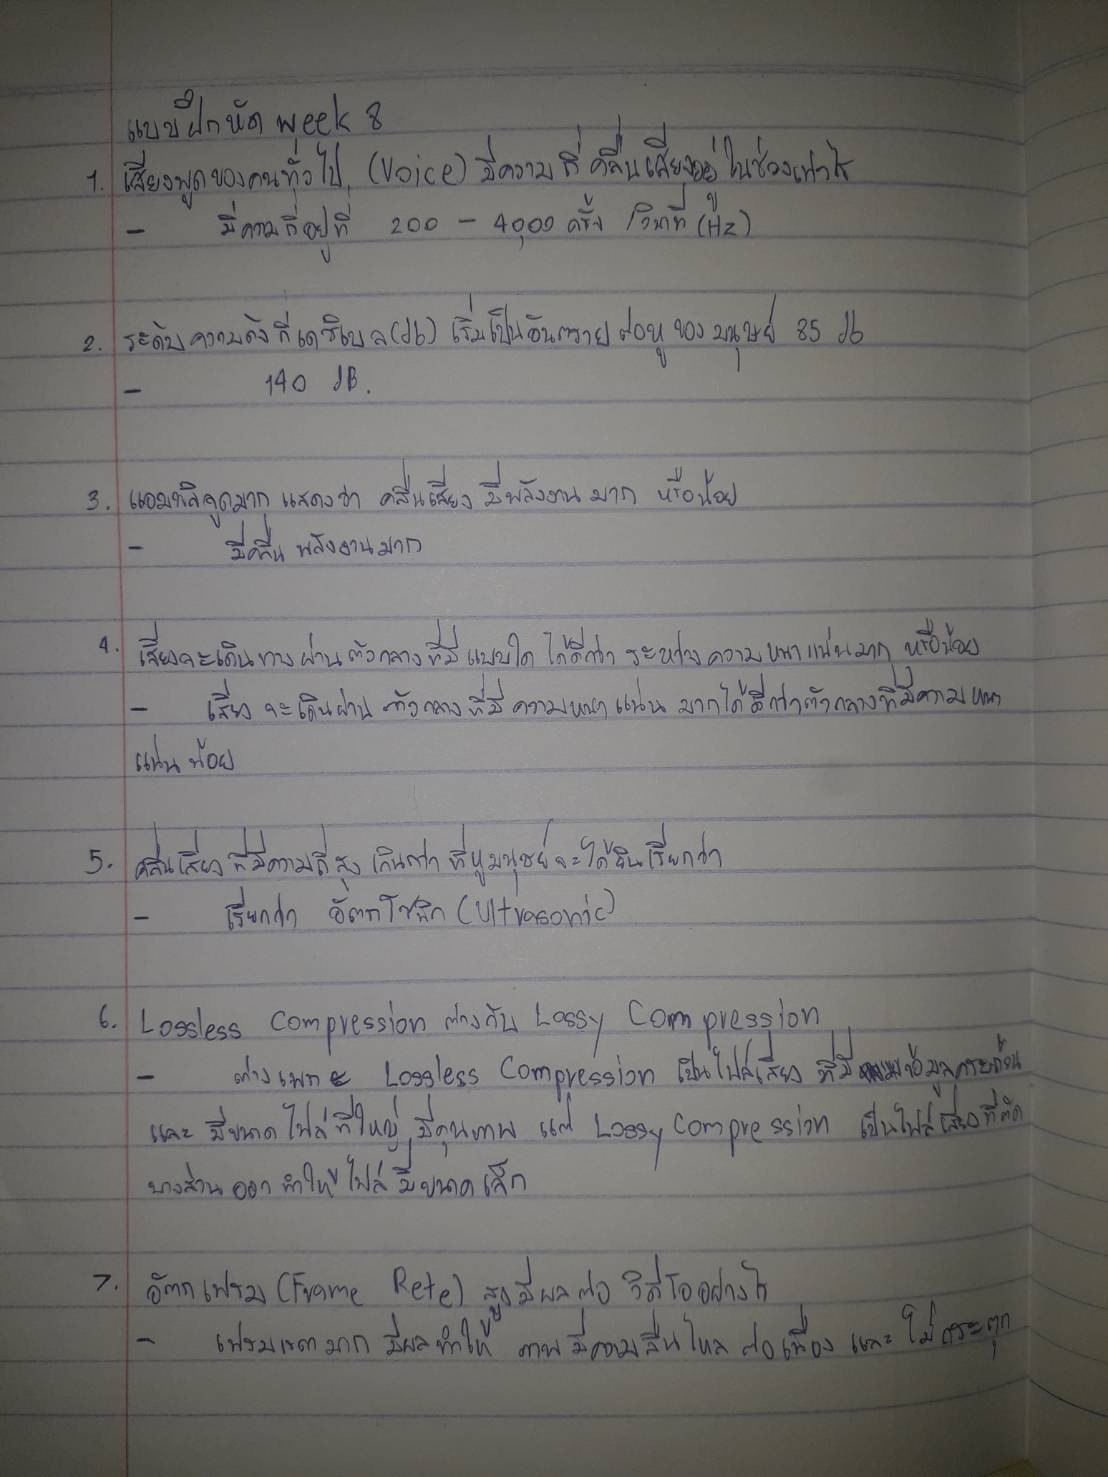 แบบฝึกหัด week 8
1. เสียงพูดของคนทั่วไป (Voice) มีความถี่คลื่นเสียงอยู่ในช่วงเท่าไร
- มีความถี่อยู่ที่ 200 - 4,000 ครั้ง /วินาที (Hz)
2. ระดับความดังที่เดซิเบล(db) เริ่มเป็นอันตรายต่อหูของมนุษย์ 85 db
- 140 dB.
3. แอมพลิจูดมาก แสดงว่า คลื่นเสียง มีพลังงานมาก หรือน้อย
- มีคลื่น พลังงานมาก
4. เสียงจะเดินทางผ่านตัวกลางที่มีแบบใด ได้ดีกว่า ระหว่างความหนาแน่นมาก หรือน้อย
- เสียง จะเดินผ่าน ตัวกลางที่มี ความหนาแน่น มากได้ดีกว่าตัวกลางที่มีความหนา
แน่น น้อย
5. คลื่นเสียง ที่มีความถี่สูง เกินกว่า ที่หูมนุษย์จะได้ยินเรียกว่า
- เรียกว่า อัลตราโซนิก (Ultrasonic)
6. Lossless Compression ต่างกับ Lossy Compression
- ต่างเพราะ Lossless Compression เป็นไฟล์เสียง ที่มี ข้อมูล
และ มีขนาดไฟล์ที่ใหญ่ มีคุณภาพ แต่ Lossy Compression เป็นไฟล์เสียงที่ตัด
บางส่วน ออก ทำให้ไฟล์ มีขนาดเล็ก
7. อัตราเฟรม (Frame Rete) สูงมีผลต่อ วิดีโออย่างไร
- เฟรมเรตมาก มีผลทำให้ ภาพมีความลื่นไหล ต่อเนื่อง และ ไม่กระตุก